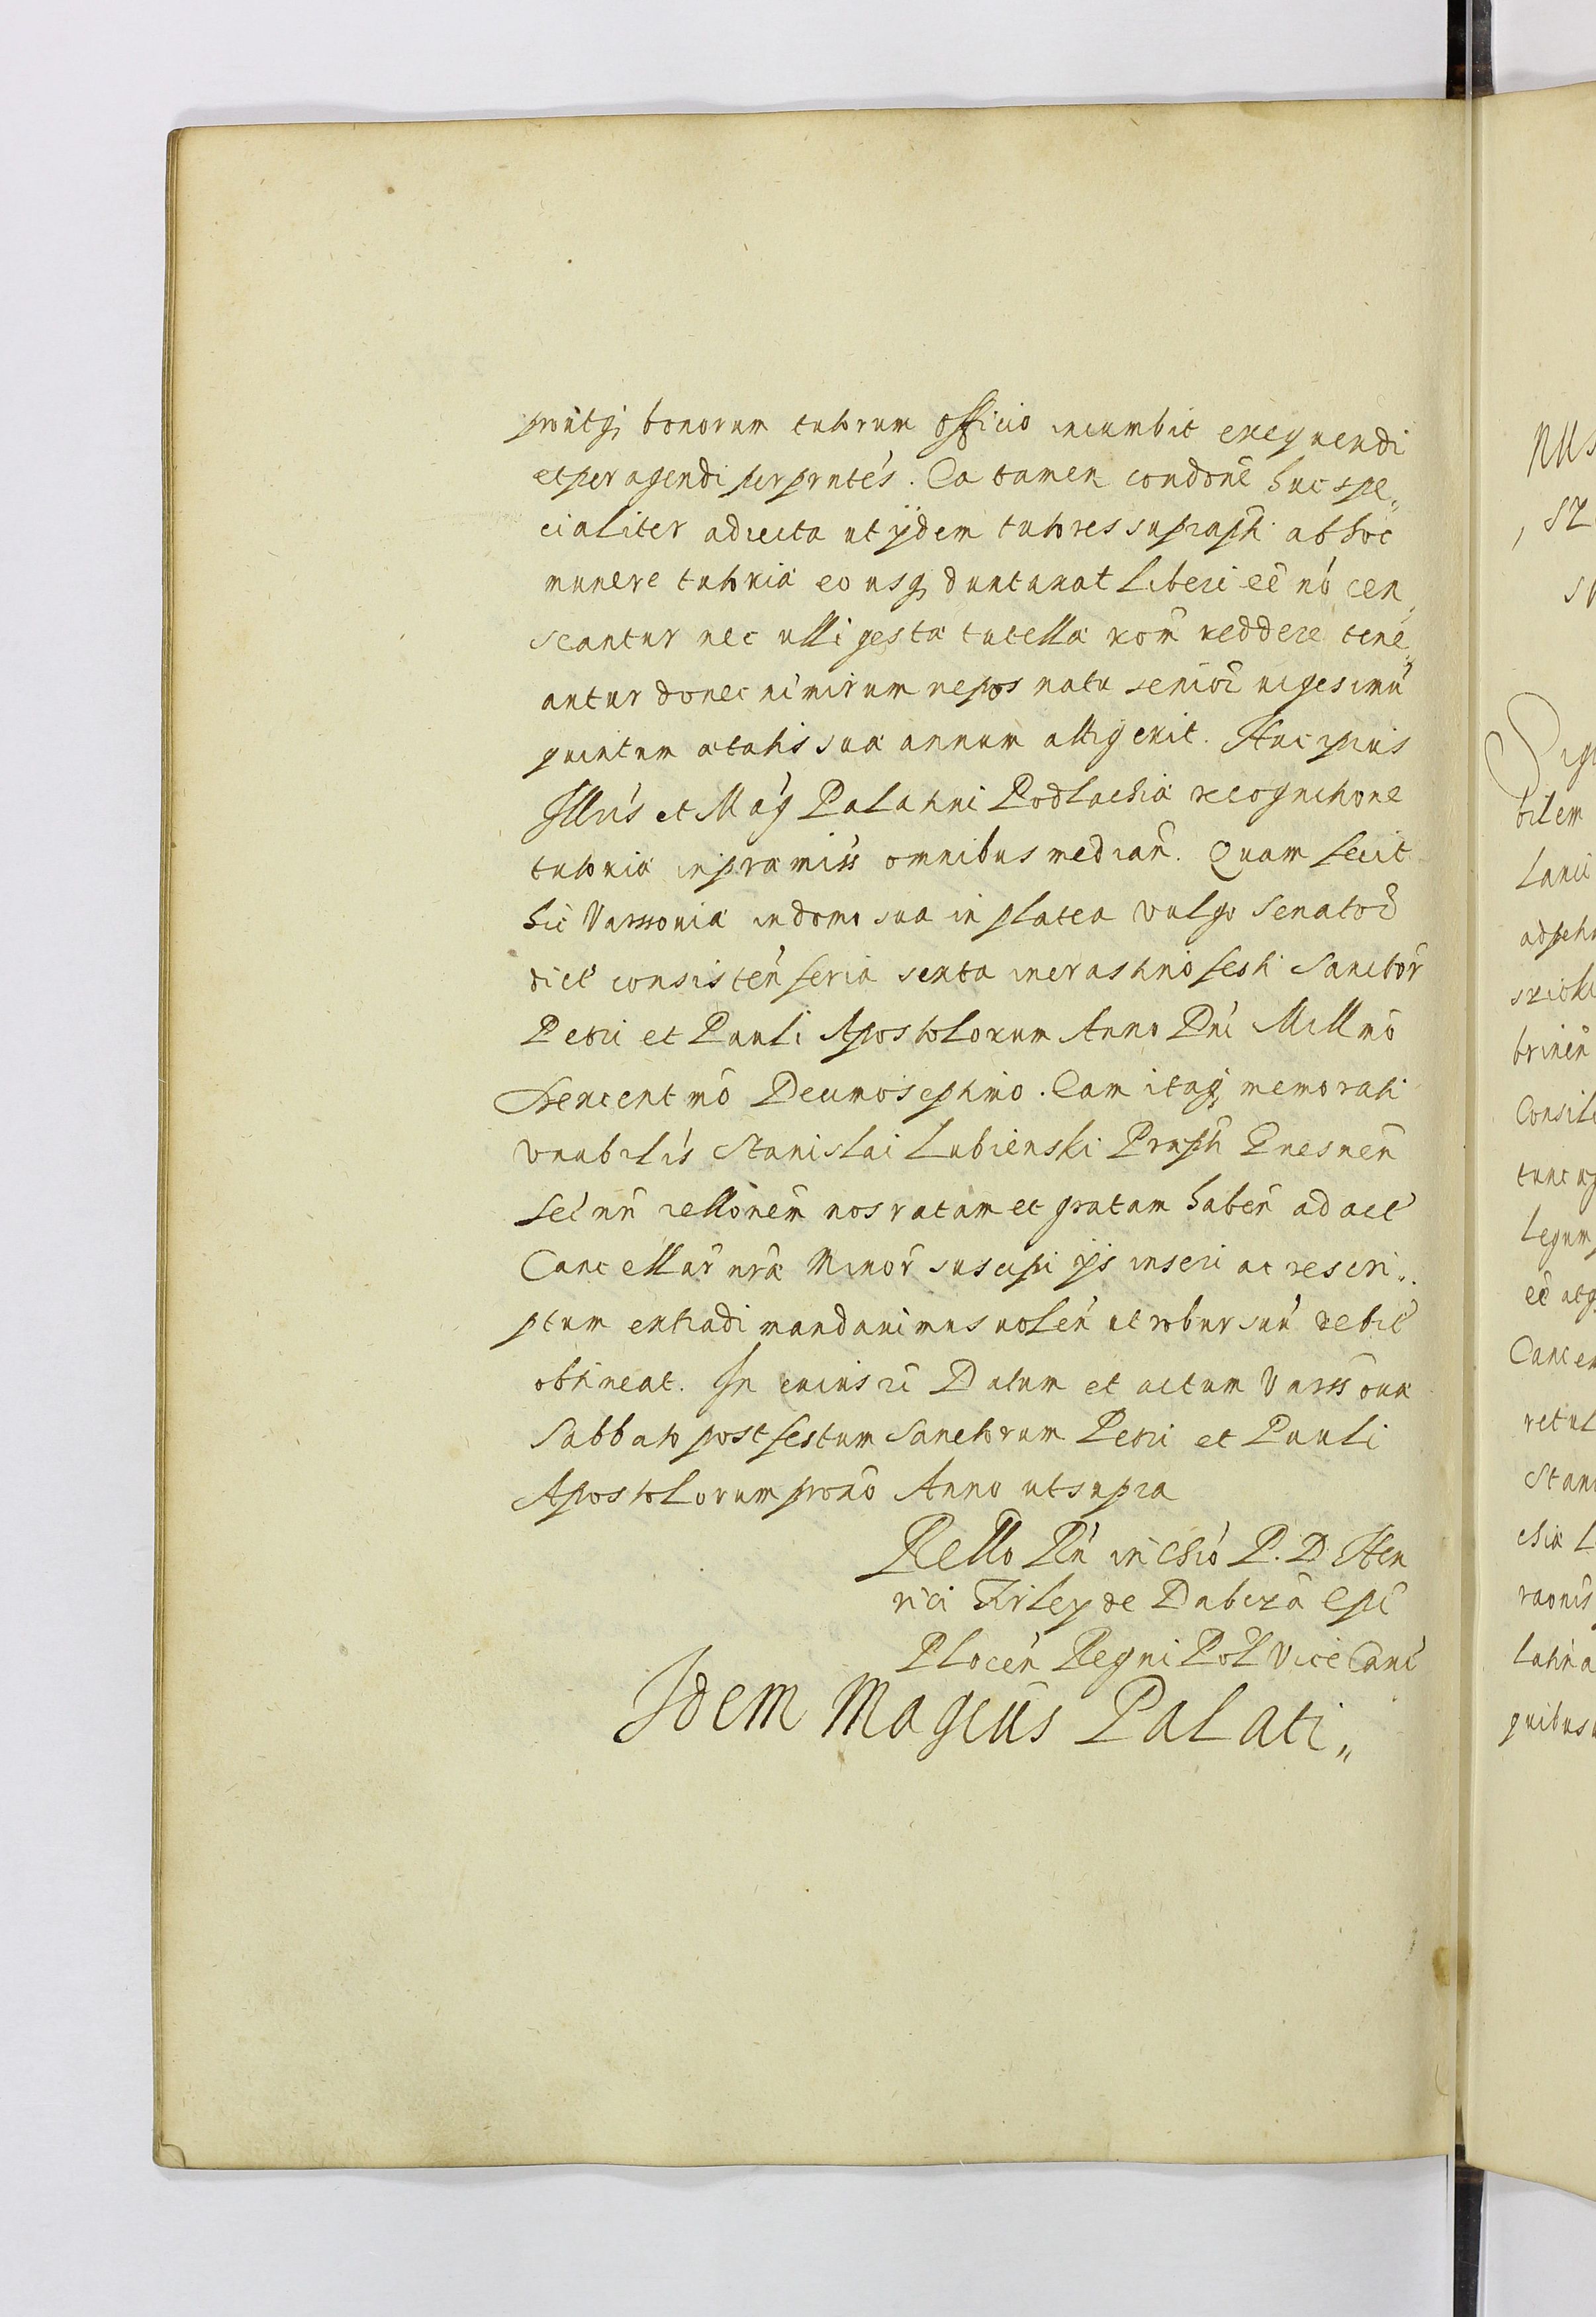 proutq; bonorum tutorum officio incumbit exequendi
et peragendi per pnteš. Ea tamen condone huc spe„
cialiter adiecta ut ijdem tutores supraspti ab hoc
munere tutoria eo usq; duntaxat liberi eē nō cen„
seantur nec ulli gesta tutella rom̃ reddere tene„
antur donec nimirum nepos natu senior uigesimū
quintum atatis sua annum attigerit. Hac ipius
Illris et Mag Palatini Podlachia recognitione
tutoria inpramiss omnibus median̄. Quam fecit
hic Varssouia indomo sua in platea vulgo Senator̄
dict consisten̄ feria sexta incrastino festi Sanctor̄
Petri et Pauli Apostolorum Anno Dni Millmo
Sexcentmo Decimoseptimo. Eam itaq; memorati
vnabilis Stanislai Lubienski Prapti Gnesnen̄
Sec nri rellonem nos ratam et gratam haben̄ ad act
Cancellar nra Minor suscipi ijs inseri ac rescri„
ptum extradi mandauimus uolen̄ ut robur suū debit
obtineat. In cuius rē Datum et actum Varssouia
Sabbato post festum Sanctorum Petri et Pauli
Apostolorum proxō Anno utsupra
Rello Rn̄ in Chrō P. D. Hen
rici Firley de Dabrza Epī
Plocen̄ Regni Pol Vice Canc
Idem Magcūs Palati„